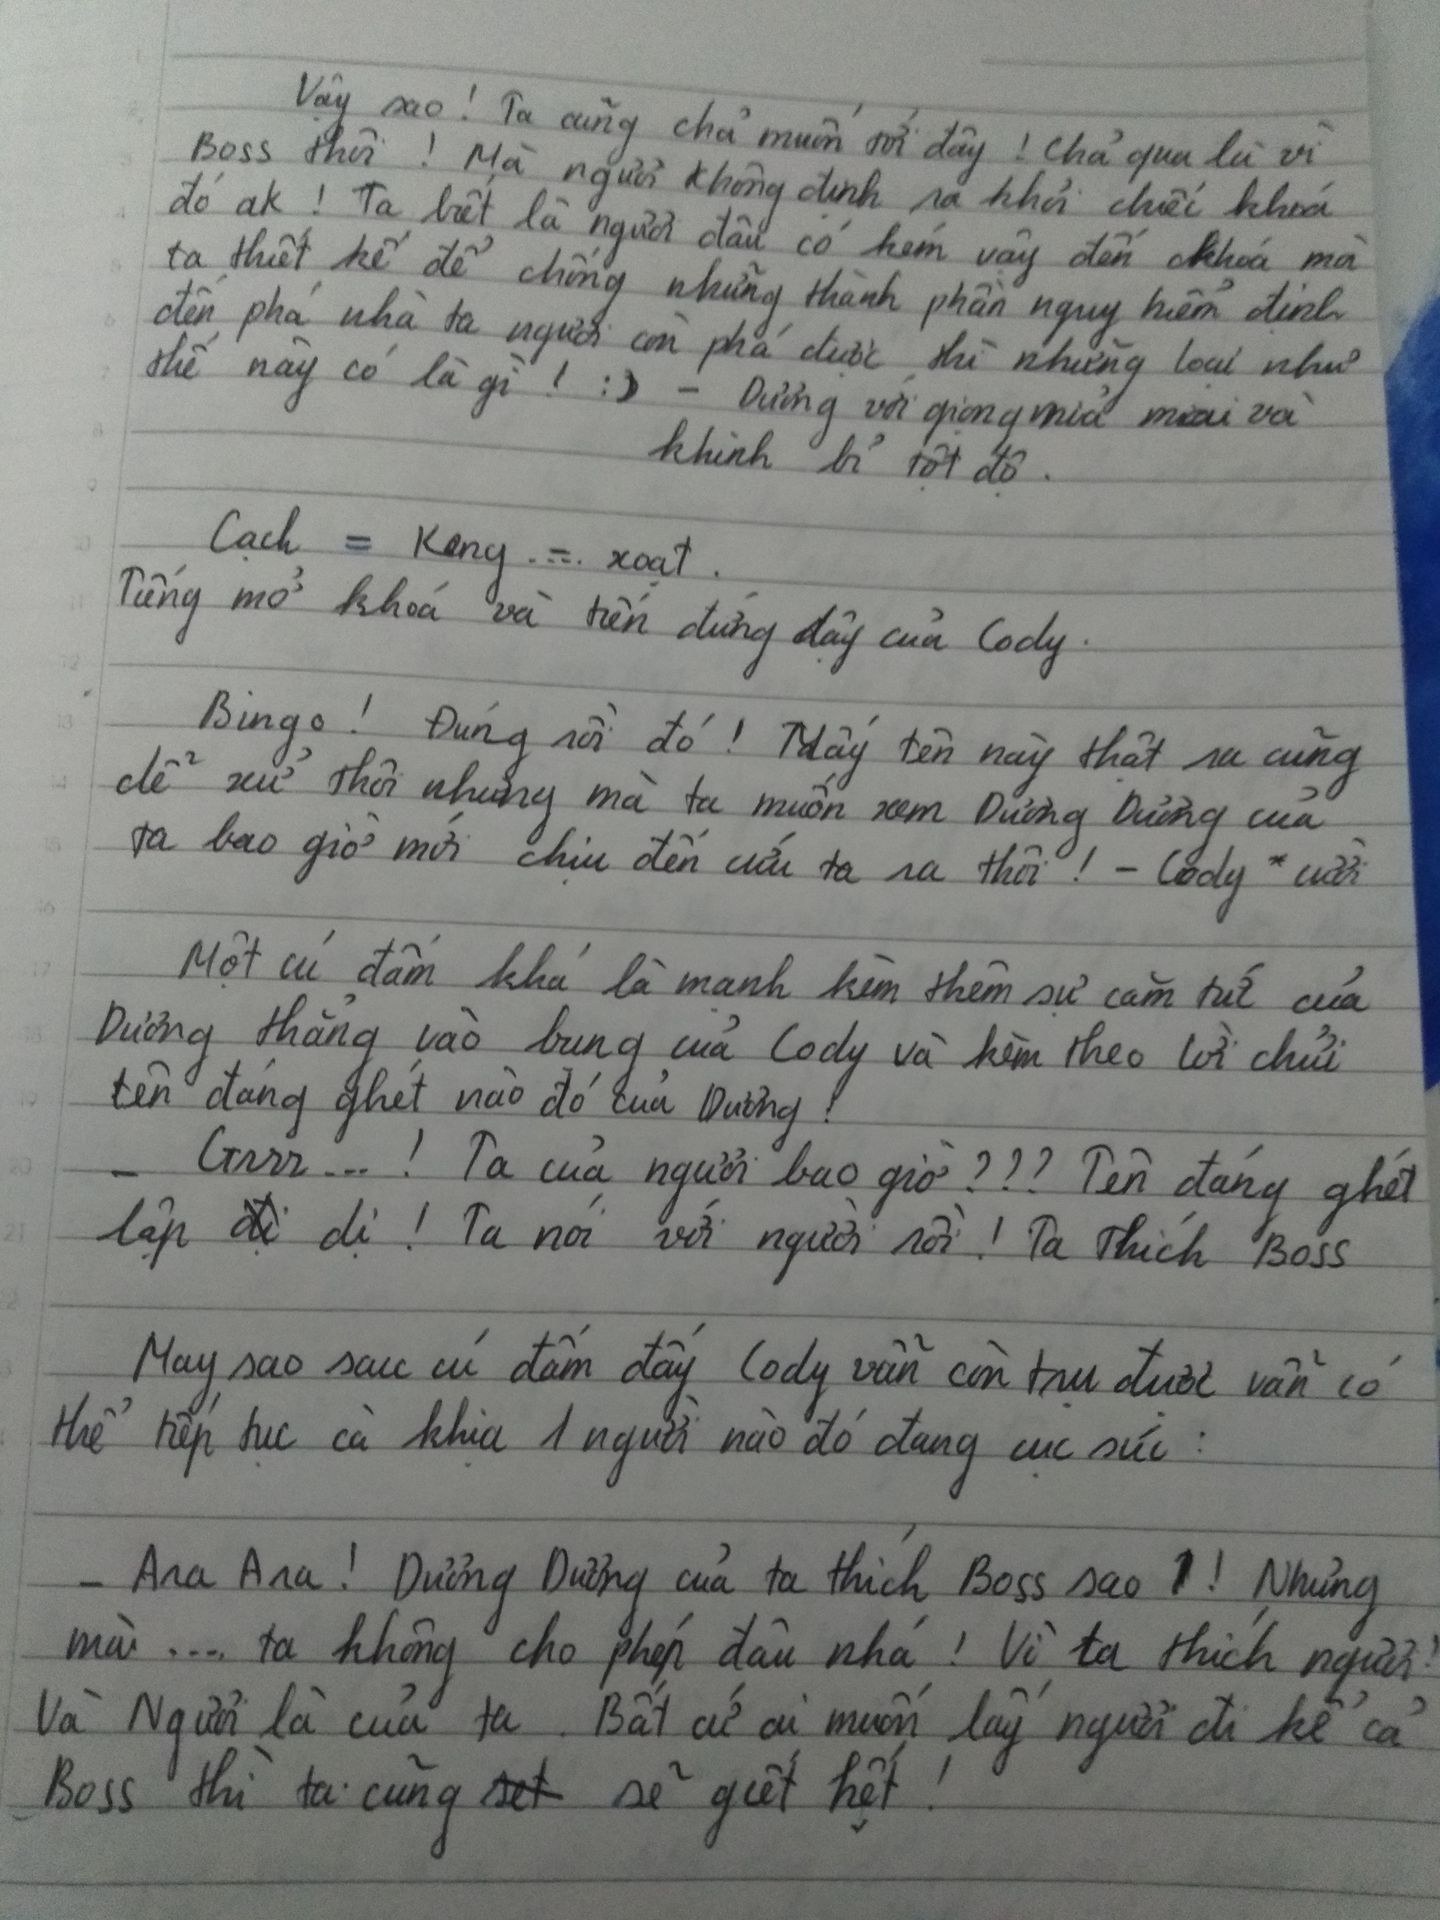 Vậy sao! Ta cũng chả muốn tới đây! Chả qua là vì
Boss thôi! Mà ngươi không định ra khỏi chiếc khoá
đó ak! Ta biết là ngươi đâu có kém vậy đến khoá mà
ta thiết kế để chống những thành phần nguy hiểm định
đến phá nhà ta ngươi còn phá được thì những loại như
thế này có là gì! :) - Dương với giọng mỉa mai và
khinh bỉ tột độ.
Cạch = Keng .=. xoạt.
Tiếng mở khoá và tiến đứng dậy của Cody.
Bingo! Đúng rồi đó! Mấy tên này thật ra cũng
dễ xử thôi nhưng mà ta muốn xem Dương Dương của
ta bao giờ mới chịu đến cứu ta ra thôi! - Cody *cười
Một cú đấm khá là mạnh kèm thêm sự căm tức của
Dương thẳng vào bụng của Cody và kèm theo lời chửi
tên đáng ghét nào đó của Dương!
- Grrr...! Ta của ngươi bao giờ??? Tên đáng ghét
lập dị! Ta nói với ngươi rồi! Ta thích Boss
May sao sau cú đấm đấy Cody vẫn còn trụ được vẫn có
thể tiếp tục cà khịa 1 người nào đó đang cục súc:
- Ara Ara! Dương Dương của ta thích Boss sao! Nhưng
mà .... ta không cho phép đâu nhá! Vì ta thích ngươi!
Và Ngươi là của ta. Bất cứ ai muốn lấy ngươi đi kể cả
Boss thì ta cũng sẽ giết hết!